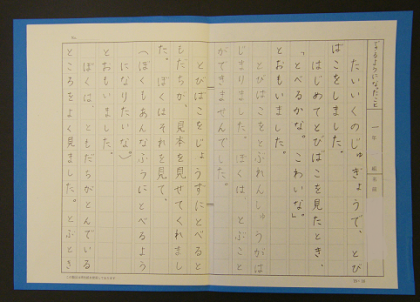 たいいくのじゅぎょうで、とび
ばこをしました。
はじめてとびばこを見たとき、
「とべるかな。こわいな」
とおもいました。
とびばこをとぶれんし
じまりました。ぼくは、とぶこと
ができませんでした。
とびばこをじょうずにとべると
もだちが、見本を見せてくれまし
た。ぼくはそれを見て、
(ぼくもあんなふうにとべるよう
になりたいな。)
とおもいました。
ぼくは、ともだちがとんでいる
ところをよく見ました。とぶとき